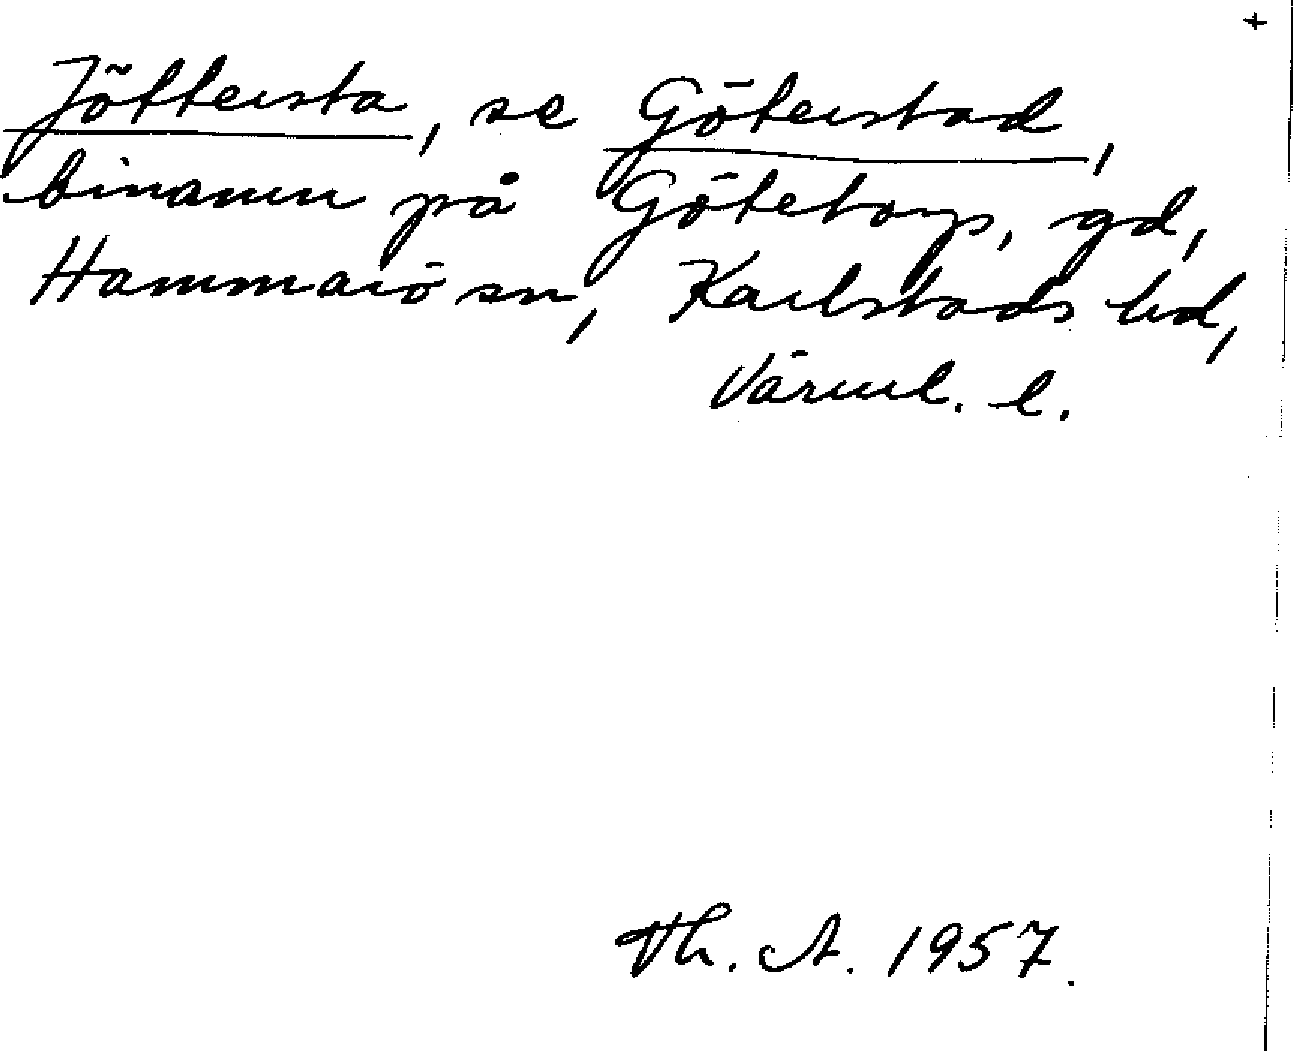 +
Jöttersta, se Göterstad,
binamn på Götetorp, gd,
Hammarö sn, Karlstads hd,
Värml. l.
Th. A. 1957.